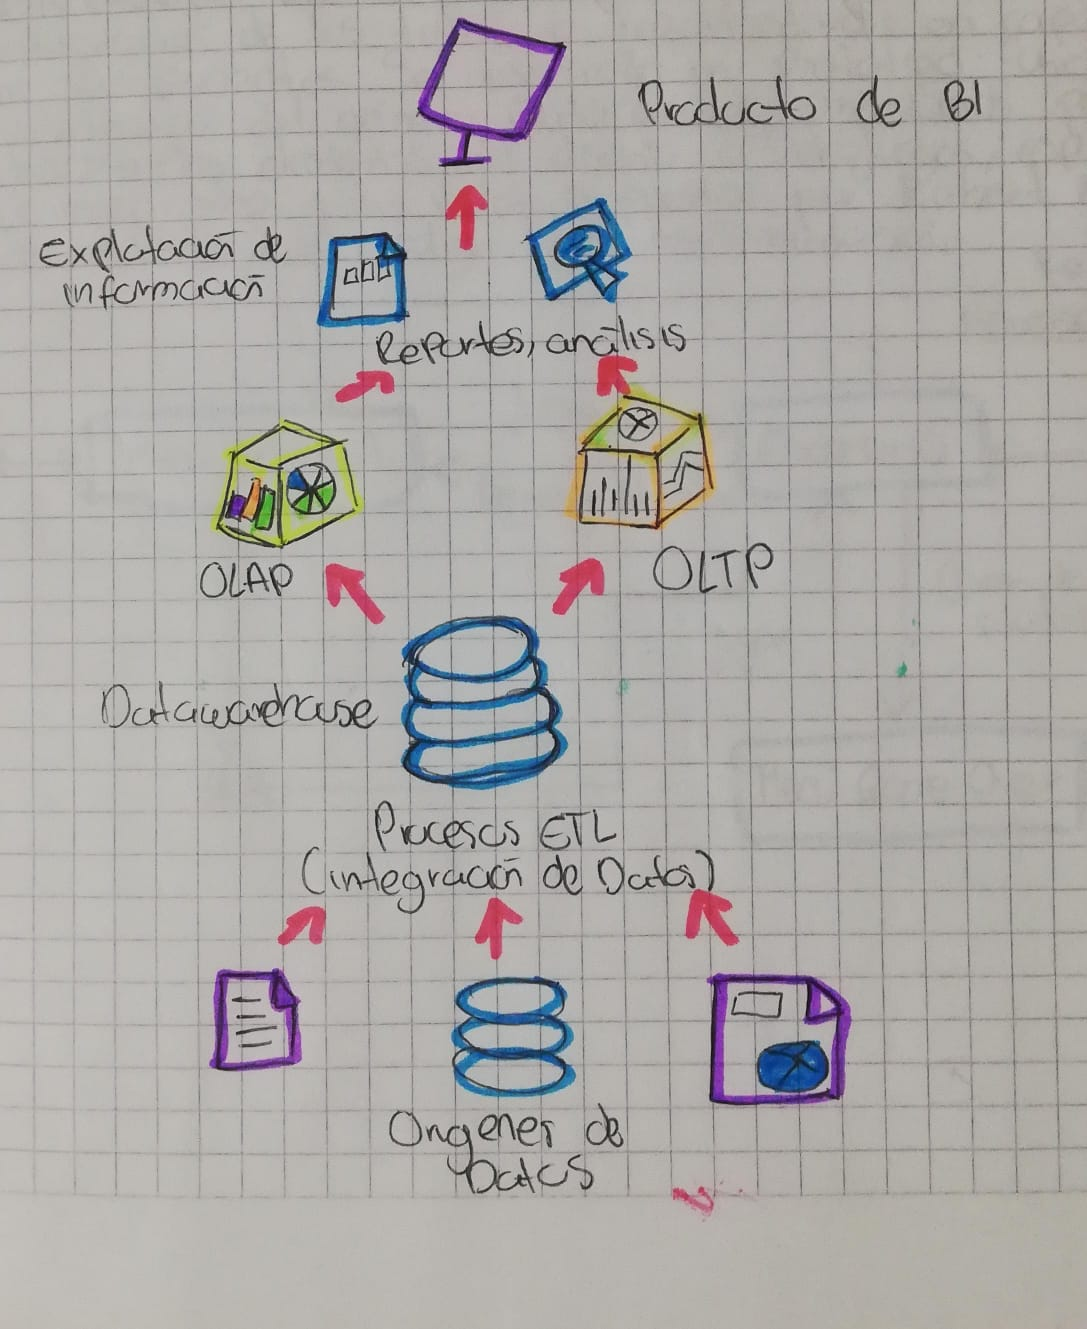 Producto de BI
Explotación de
información
Reportes, análisis
OLAP
OLTP
Datawarehouse
Procesos ETL
(integración de Datos)
Orígenes de
Datos